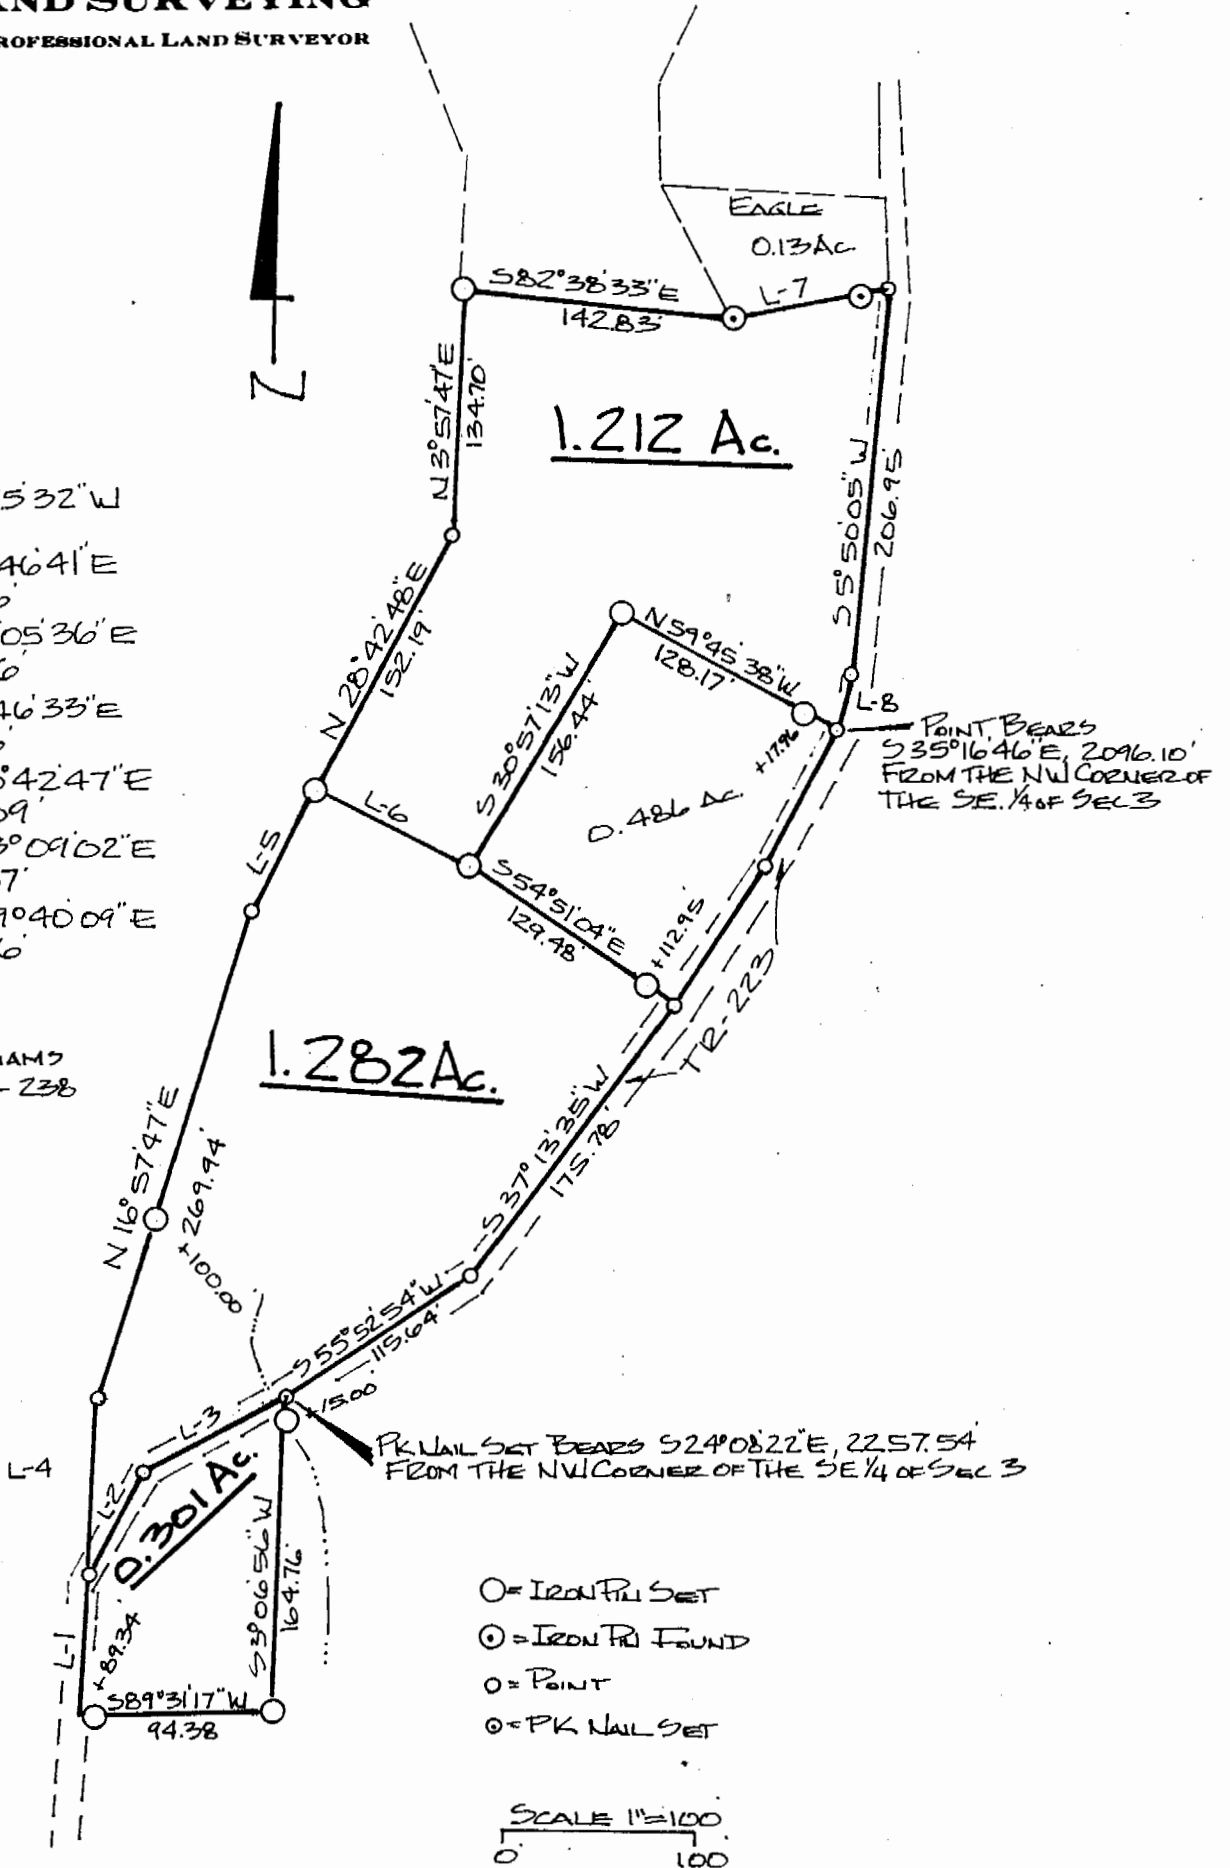 AND SURVEYING
ROFESSIONAL LAND SURVEYOR
EAGLE
0.13 Ac.
L-7
S82°38'33"E
142.83'
N3°57'47"E
134.70'
1.212 Ac.
S5°50'05"W
206.95'
5'32"W
46'41"E
05'36"E
6'
46'33"E
°42'47"E
09'
3°09'02"E
7'
9°40'09"E
6'
AMS
- 238
N 28°42'48"E
152.19'
N59°45'38"W
128.17'
+17.96
L-8
POINT BEARS
S35°16'46"E, 2096.10'
FROM THE NW CORNER OF
THE SE. 1/4 OF SEC 3
S30°57'13"W
156.44'
0.486 Ac.
L-6
L-5
S54°51'04"E
129.48'
+112.95'
TR-223
1.282 Ac.
N16°57'47"E
269.94'
+100.00
S37°13'35"W
175.78'
S55°52'54"W
115.64'
+15.00'
PK NAIL SET BEARS S24°08'22"E, 2257.54'
FROM THE NW CORNER OF THE SE 1/4 OF SEC 3
L-3
L-4
L-2
0.301 Ac.
S3°06'56"W
164.76'
L-1
+89.34'
S89°31'17"W
94.38
O = IRON PIN SET
⊙ = IRON PIN FOUND
o = POINT
⊙ = PK NAIL SET
SCALE 1"=100'
0 100
N